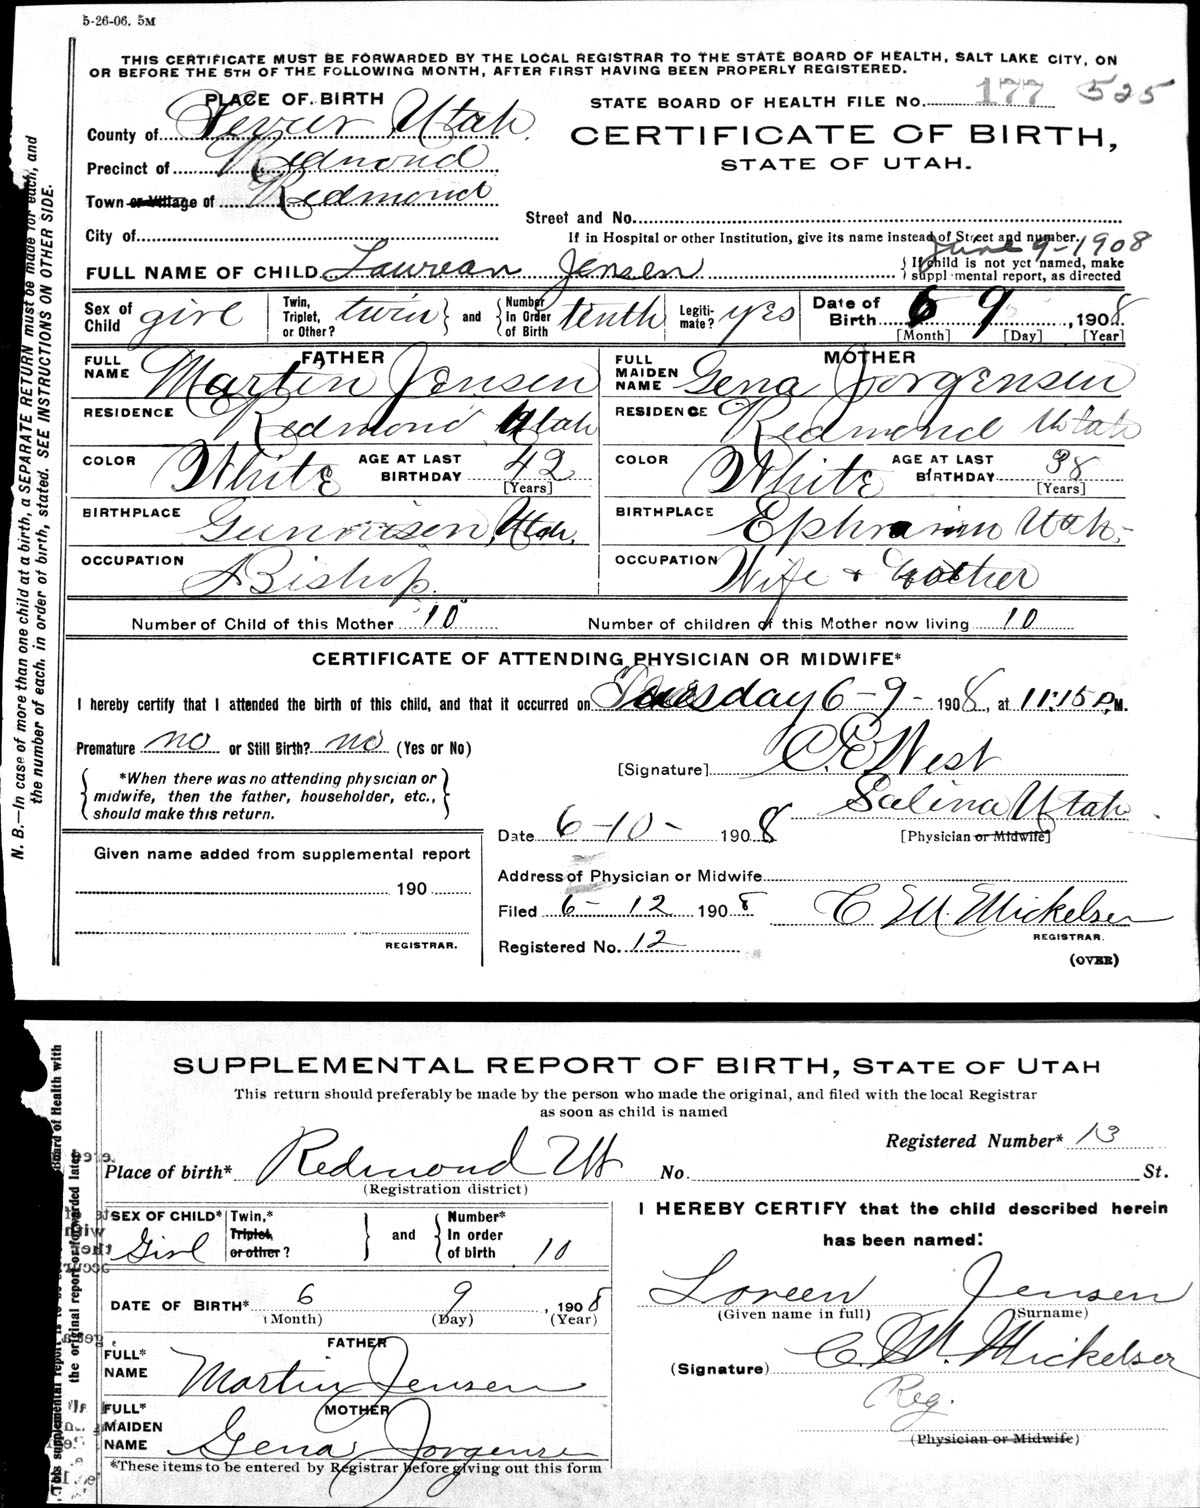 5-26-06. 5M
THIS CERTIFICATE MUST BE FORWARDED BY THE LOCAL REGISTRAR TO THE STATE BOARD OF HEALTH, SALT LAKE CITY, ON
OR BEFORE THE 5TH OF THE FOLLOWING MONTH, AFTER FIRST HAVING BEEN PROPERLY REGISTERED.
PLACE OF BIRTH
STATE BOARD OF HEALTH FILE No. 177 525
County of Sevier Utah
CERTIFICATE OF BIRTH,
STATE OF UTAH.
Precinct of Redmond
Town or Village of Redmond
Street and No.
City of
If in Hospital or other Institution, give its name instead of Street and number.
June 9-1908
FULL NAME OF CHILD Laurean Jensen
If child is not yet named, make supplemental report, as directed
Sex of Child girl Twin, Triplet, or Other? twin and Number in Order of Birth tenth Legitimate? yes Date of Birth 6 9, 1908
[Month] [Day] [Year]
FATHER
FULL NAME Martin Jensen
MOTHER
FULL MAIDEN NAME Gena Jorgensen
RESIDENCE Redmond Utah
RESIDENCE Redmond Utah
COLOR White AGE AT LAST BIRTHDAY 42 [Years]
COLOR White AGE AT LAST BIRTHDAY 38 [Years]
BIRTHPLACE Gunnison, Utah.
BIRTHPLACE Ephraim Utah.
OCCUPATION Bishop.
OCCUPATION Wife + Mother
Number of Child of this Mother 10
Number of children of this Mother now living 10
CERTIFICATE OF ATTENDING PHYSICIAN OR MIDWIFE*
I hereby certify that I attended the birth of this child, and that it occurred on Tuesday 6-9-1908, at 11:15 P.M.
Premature no or Still Birth? no (Yes or No)
[Signature] West
*When there was no attending physician or
midwife, then the father, householder, etc.,
should make this return.
Salina Utah
Date 6-10- 1908
[Physician or Midwife]
Given name added from supplemental report
190
REGISTRAR.
Address of Physician or Midwife
Filed 6-12 1908 C M. Mickelsen
REGISTRAR.
Registered No. 12
(OVER)
N. B.—In case of more than one child at a birth, a SEPARATE RETURN must be made for each, and
the number of each, in order of birth, stated. SEE INSTRUCTIONS ON OTHER SIDE.
SUPPLEMENTAL REPORT OF BIRTH, STATE OF UTAH
This return should preferably be made by the person who made the original, and filed with the local Registrar
as soon as child is named
Registered Number* 13
Place of birth* Redmond Ut No. St.
(Registration district)
SEX OF CHILD* Girl Twin,* Triplet, or other? and Number* In order of birth 10
DATE OF BIRTH* 6 9, 1908
(Month) (Day) (Year)
FATHER
FULL* NAME Martin Jensen
MOTHER
FULL* MAIDEN NAME Gena Jorgensen
*These items to be entered by Registrar before giving out this form
I HEREBY CERTIFY that the child described herein
has been named:
Loreen Jensen
(Given name in full) (Surname)
(Signature) C. M. Mickelsen
Reg.
(Physician or Midwife)